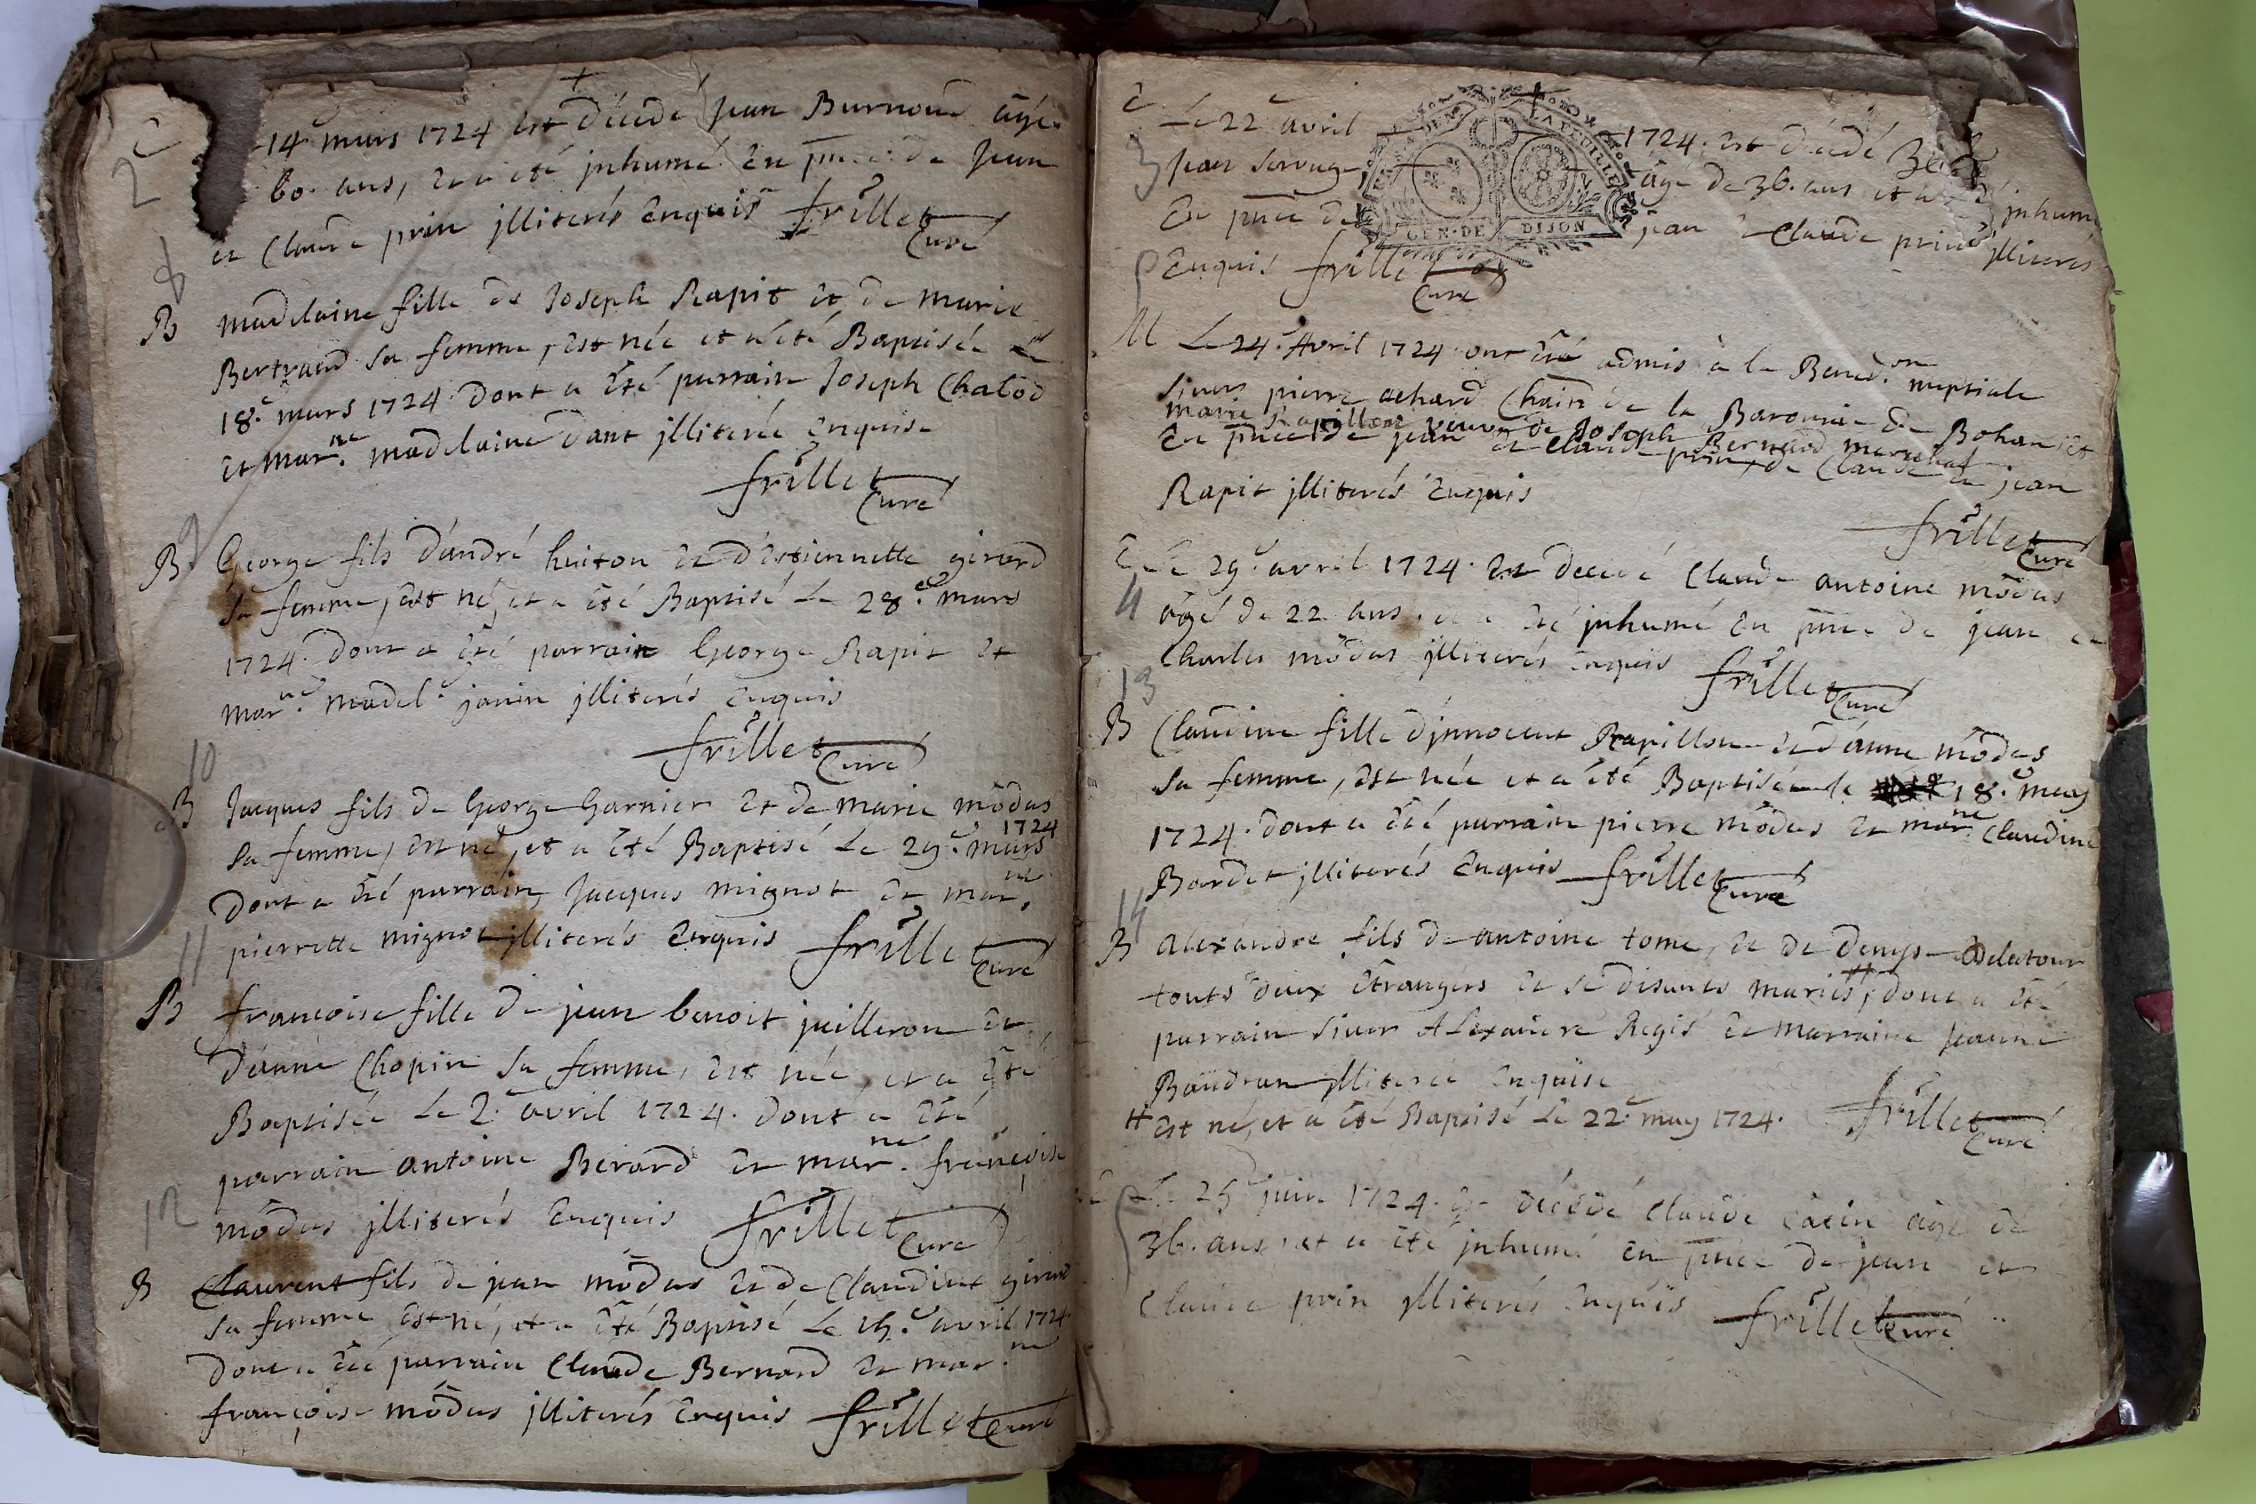 2 C
14.e mars 1724 est décédé jean Burnoud âgé
60. ans, et a été jnhumé en pnce de jean
et Claude prin jlliterés enquis frillet
Curé
8
B madelaine fille de Joseph Rapit et de marie
Bertrand sa femme, est née et a été Baptisée le
18.e mars 1724. Dont a été parrain Joseph Chalod
et mar.ne madelaine Dant jlliterée enquise
frillet
Curé
9
B. George fils d'andré huiton et d'estiennette girard
sa femme, est né, et a été Baptisé le 28.e mars
1724. Dont a été parrain George Rapit et
mar.ne madel.e janin jlliterés enquis
frillet Curé
10
B Jacques fils de George Garnier et de marie môdas
sa femme, est né, et a été Baptisé le 29.e mars 1724
Dont a été parrain Jacques mignot et mar.ne
pierrette mignot jlliterés enquis frillet
Curé
11
B françoise fille de jean benoit juilleron et
d'anne Chopin sa femme, est née, et a été
Baptisée le 2.e avril 1724. Dont a été
parrain antoine Berard et mar.ne françoise
môdas jlliterés enquis frillet
Curé
12
B Claurent fils de jean môdas et de Claudine girard
sa femme est né, et a été Baptisé le 15.e avril 1724
Dont a été parrain Claude Bernard et mar.ne
françoise môdas jlliterés enquis frillet Curé
Le 22.e avril 1724. est décédé
3 jean âgé de 36. ans et a été jnhumé
en pnce de jean et Claude prin jlliterés
enquis frillet
Curé
GEN. DE DIJON
M Le 24.e Avril 1724 ont été admis à la Bened.on nuptiale
sieur pierre achard Chain de la Baronie de Bohan et
marie Rapillon veuve de Joseph Bernard mareschal
en pnce de jean et Claude prin, de Claude et jean
Rapit jlliterés enquis
frillet
Curé
Le 29.e avril 1724. est décédé Claude antoine môdas
4 âgé de 22 ans. et a été jnhumé en pnce de jean et
Charles môdas jlliterés enquis frillet
Curé
13
B Claudine fille d'jnnocent Rapillon et d'anne môdas
sa femme, est née et a été Baptisée le 18.e may
1724. dont a été parrain pierre môdas et mar.ne Claudine
Bardet jlliterés enquis frillet
Curé
14
B Alexandre fils de antoine tome, et de denyse Delatour
touts deux étrangers et se disants mariés, dont a été
parrain sieur Alexandre Regis et marraine Jeanne
Baudran jlliterée enquise
# est né, et a été Baptisé le 22.e may 1724. frillet
Curé
Le 25.e juin 1724. est décédé Claude catin âgé de
36. ans, et a été jnhumé en pnce de jean et
Claude prin jlliterés enquis frillet Curé